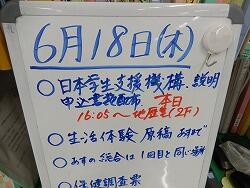 6月18日(木)
○日本学生支援機構.説明
申込書類配布 本日
16:05～地歴室(2F)
○生活体験 原稿 あすまで
○あすの総合は1回目と同じ場所
○保健調査票